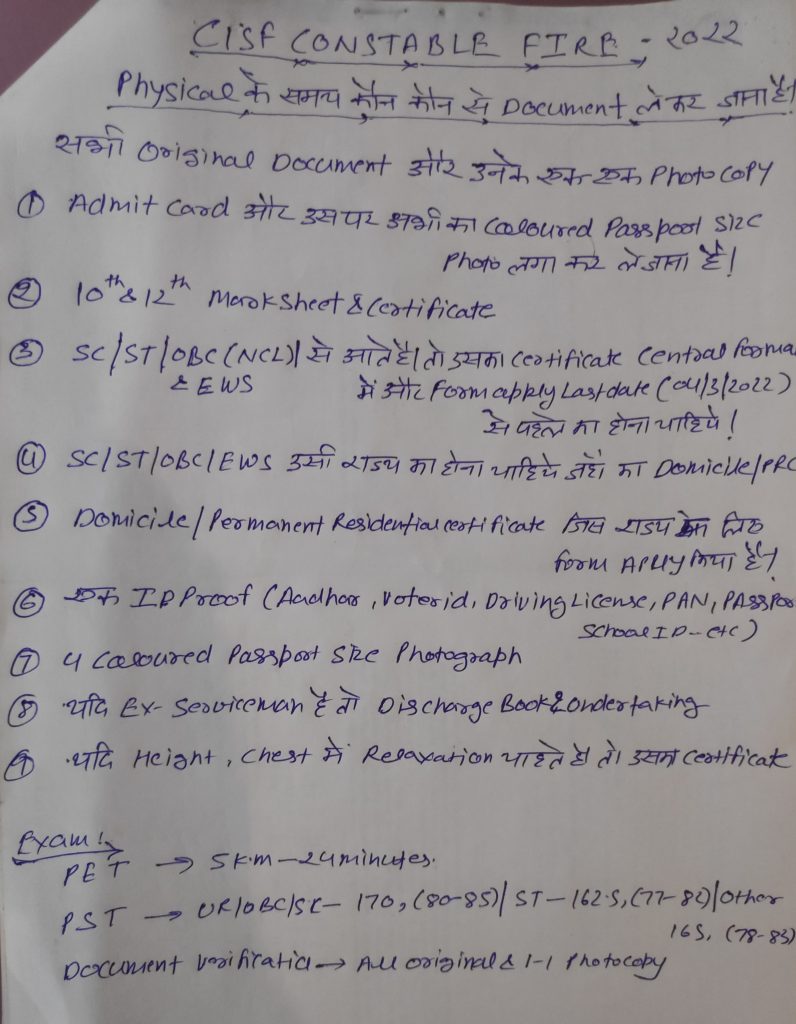 CISF CONSTABLE FIRE - 2022
Physical के समय कौन कौन से Document ले कर जाना है।
सभी Original Document और उनके एक एक Photo Copy
① Admit Card और उस पर अभी का Coloured Passport Size
Photo लगा कर ले जाना है।
② 10th & 12th Marksheet & Certificate
③ SC/ST/OBC (NCL) से आते है। तो उसका Certificate Central Forma
& EWS में और Form apply Last date (04/3/2022)
से पहले का होना चाहिये।
④ SC/ST/OBC/EWS उसी राज्य का होना चाहिये जहाँ का Domicile/PRC
⑤ Domicile/Permanent Residential certificate जिस राज्य के लिए
form Apply किया है।
⑥ एक ID Proof (Aadhar, Voter id, Driving License, PAN, PASSPor
School ID - etc)
⑦ 4 Coloured Passport Size Photograph
⑧ यदि Ex-Serviceman है तो Discharge Book & Undertaking
⑨ यदि Height, Chest में Relaxation चाहते है तो उसका Certificate
Exam!
PET → 5 k.m - 24 minutes.
PST → UR/OBC/SC - 170, (80-85)/ ST - 162.5, (77-82)/Other
165, (78-83)
Document varification → All original & 1-1 Photocopy